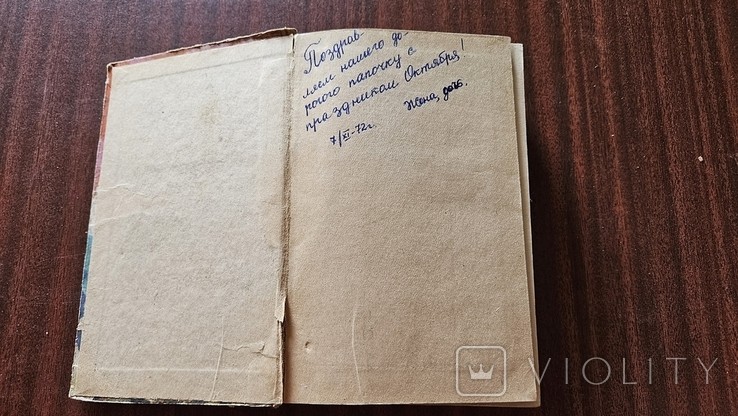 Поздрав-
ляем нашего до-
рогого папочку с
праздником Октября!
Жена, дети.
7/XI-72г.
VIOLITY